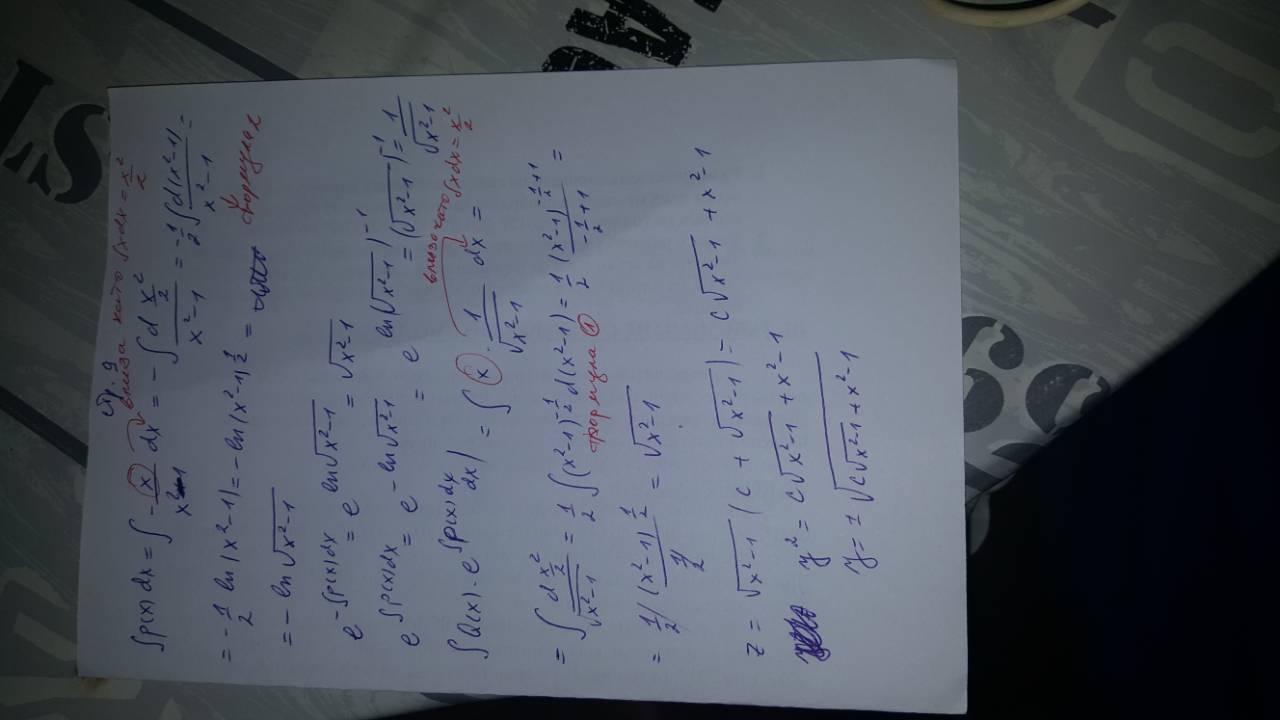 стр. 9
влиза като ∫xdx = x²/2
∫p(x) dx = ∫ - x/(x²-1) dx = - ∫ d x²/2 / (x²-1) = -1/2 ∫ d(x²-1)/(x²-1) =
= - 1/2 ln(x²-1) = - ln(x²-1)^1/2 =
формула 2
= - ln √(x²-1)
e^(-∫p(x)dx) = e^(ln√(x²-1)) = √(x²-1)
e^(∫p(x)dx) = e^(-ln√(x²-1)) = e^(ln(√(x²-1))^-1) = (√(x²-1))^-1 = 1/√(x²-1)
влиза като ∫xdx = x²/2
∫Q(x) . e^(∫p(x)dx) dx) = ∫ x . 1/√(x²-1) dx =
= ∫ d x²/2 / √(x²-1) = 1/2 ∫ (x²-1)^(-1/2) d(x²-1) = 1/2 (x²-1)^(-1/2+1) / (-1/2+1) =
формула ①
= 1/2 (x²-1)^1/2 / 1/2 = √(x²-1)
z = √(x²-1) (c + √(x²-1)) = c√(x²-1) + x²-1
y² = c√(x²-1) + x²-1
y = ± √(c√(x²-1) + x²-1)